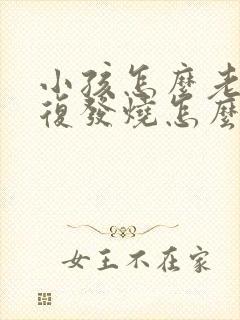 小孩怎麼老
復發燒怎麼
女王不在家